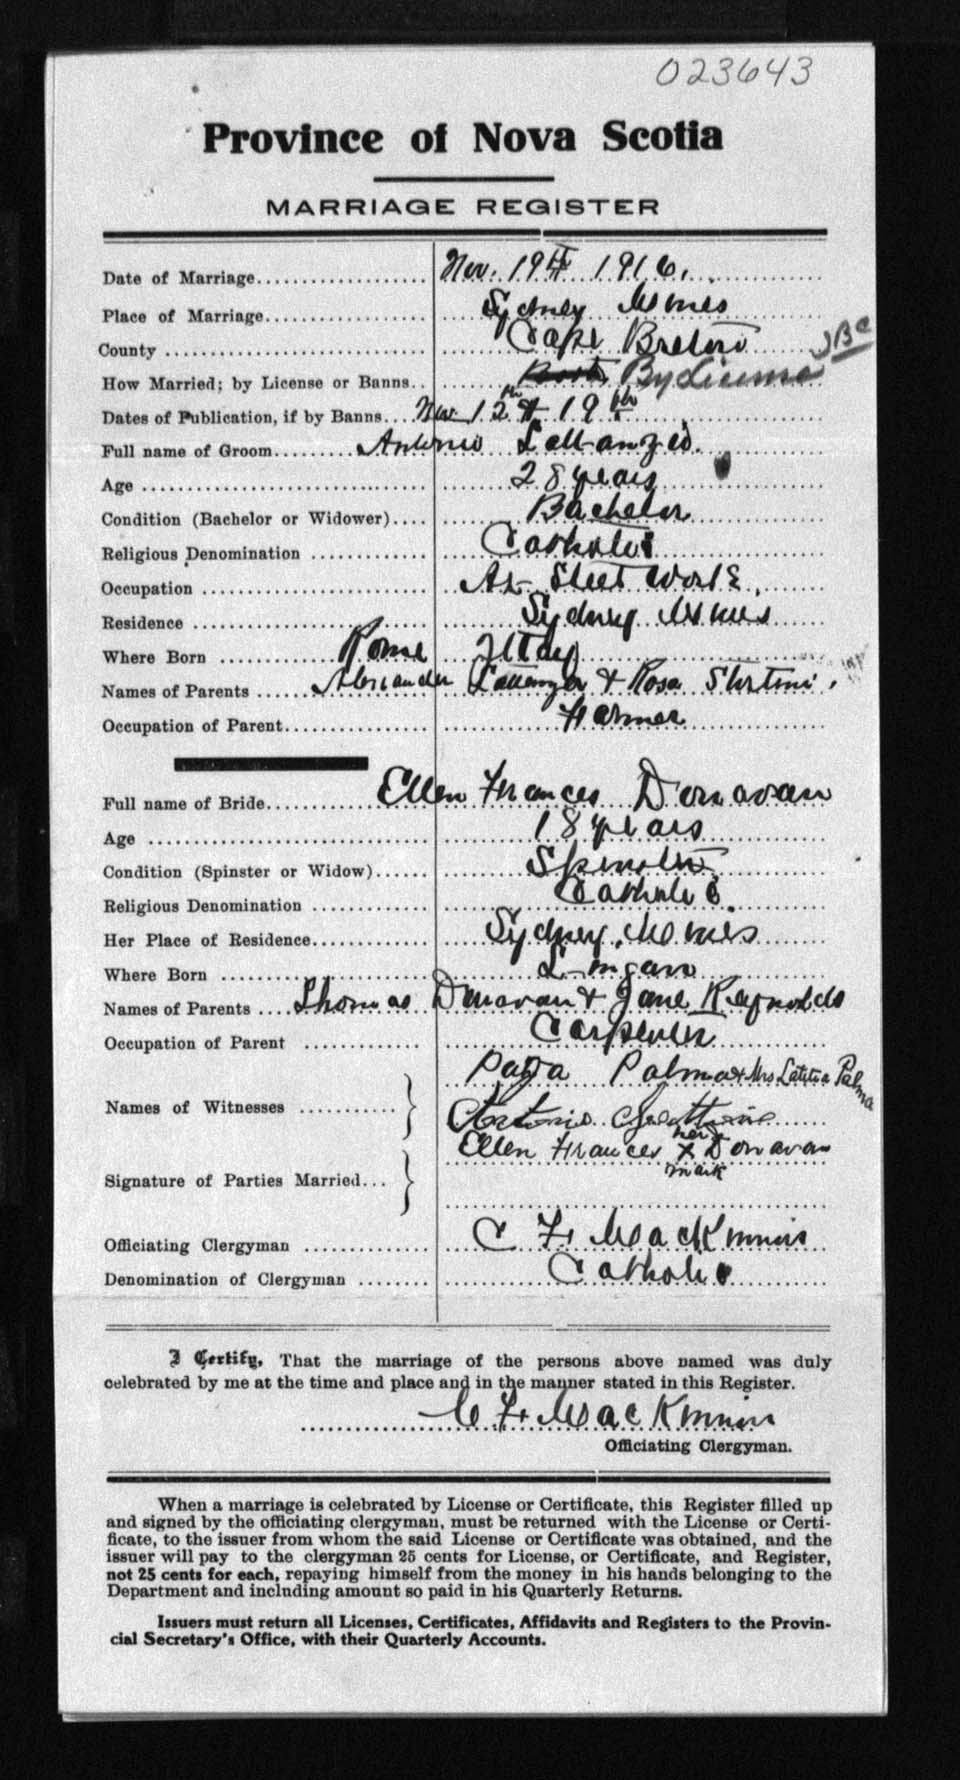 023643
Province of Nova Scotia
MARRIAGE REGISTER
Date of Marriage Nov. 19th 1916.
Place of Marriage Sydney Mines
County Cape Breton
How Married; by License or Banns Both By License JBC
Dates of Publication, if by Banns Nov. 12th & 19th
Full name of Groom Antonio
Age 28 years
Condition (Bachelor or Widower) Bachelor
Religious Denomination Catholic
Occupation At Steel Works
Residence Sydney Mines
Where Born Rome Ittaly
Names of Parents Alexander & Rosa
Occupation of Parent Farmer
Full name of Bride Ellen Frances Donavan
Age 18 years
Condition (Spinster or Widow) Spinster
Religious Denomination Catholic.
Her Place of Residence Sydney Mines
Where Born Lingan
Names of Parents Thomas Donavan & Jane Reynolds
Occupation of Parent Carpenter
Names of Witnesses Palma & Mrs Latitia Palma
Antonio
Signature of Parties Married Ellen Frances her X mark Donavan
Officiating Clergyman C F MacKinnon
Denomination of Clergyman Catholic
I Certify, That the marriage of the persons above named was duly
celebrated by me at the time and place and in the manner stated in this Register.
C F MacKinnon
Officiating Clergyman.
When a marriage is celebrated by License or Certificate, this Register filled up
and signed by the officiating clergyman, must be returned with the License or Certi-
ficate, to the issuer from whom the said License or Certificate was obtained, and the
issuer will pay to the clergyman 25 cents for License, or Certificate, and Register,
not 25 cents for each, repaying himself from the money in his hands belonging to the
Department and including amount so paid in his Quarterly Returns.
Issuers must return all Licenses, Certificates, Affidavits and Registers to the Provin-
cial Secretary's Office, with their Quarterly Accounts.